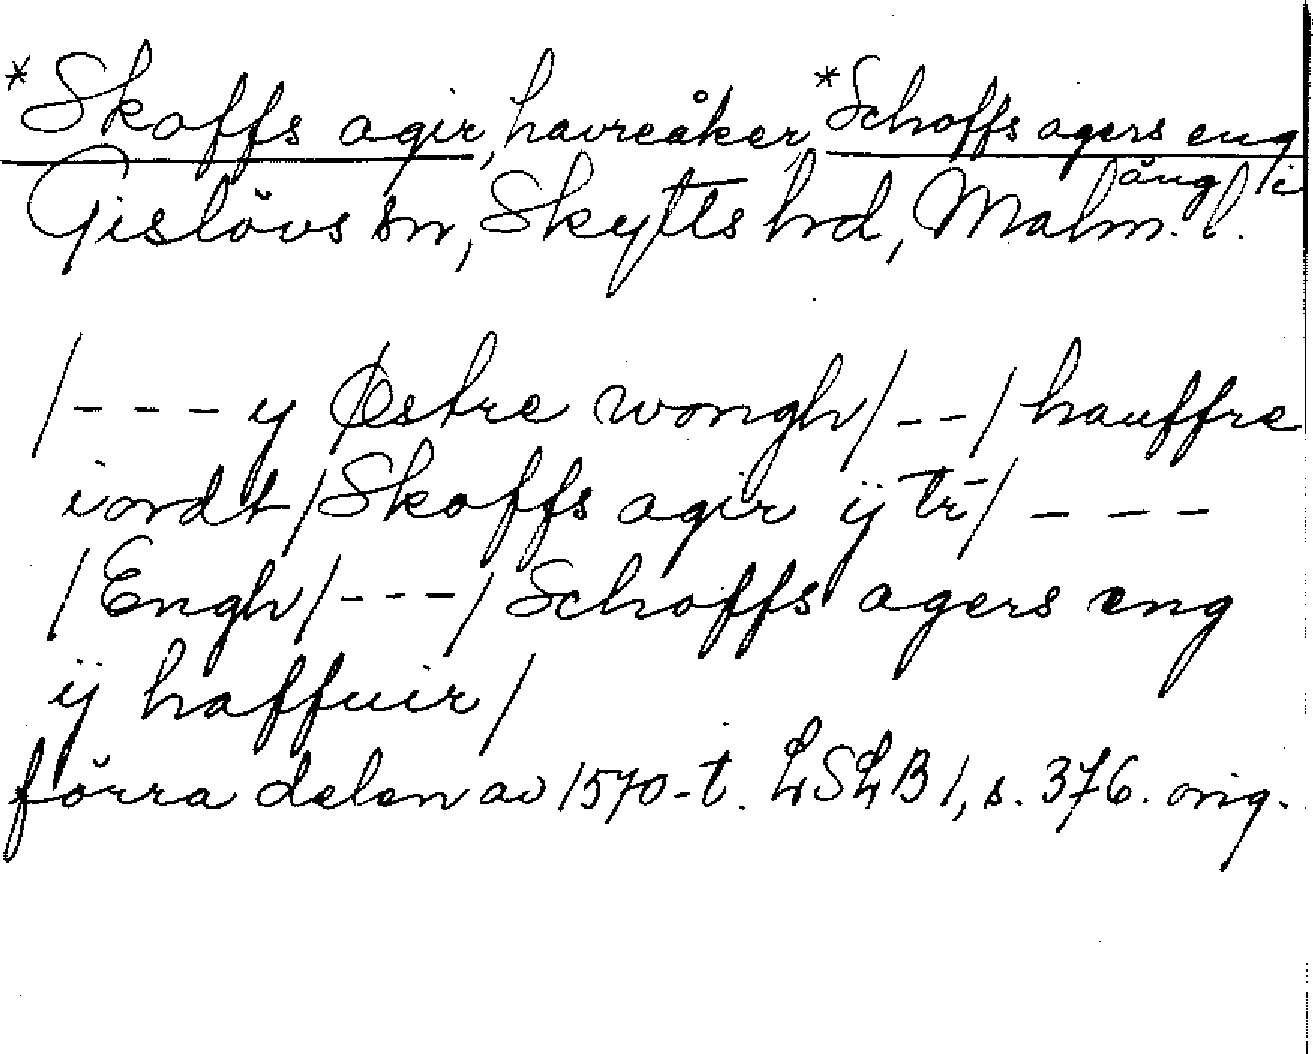 *Skoffs agir, havreåker, *Schoffs agers eng
äng i
Gislövs sn, Skytts hd, Malm. l.
/---y Østre wongh/--/hauffre
iordt/Skoffs agir ÿ tr̄/---
/Engh/---/Schoffs agers eng
ÿ haffuir/
förra delen av 1570-t. LSLB 1, s. 376. orig.